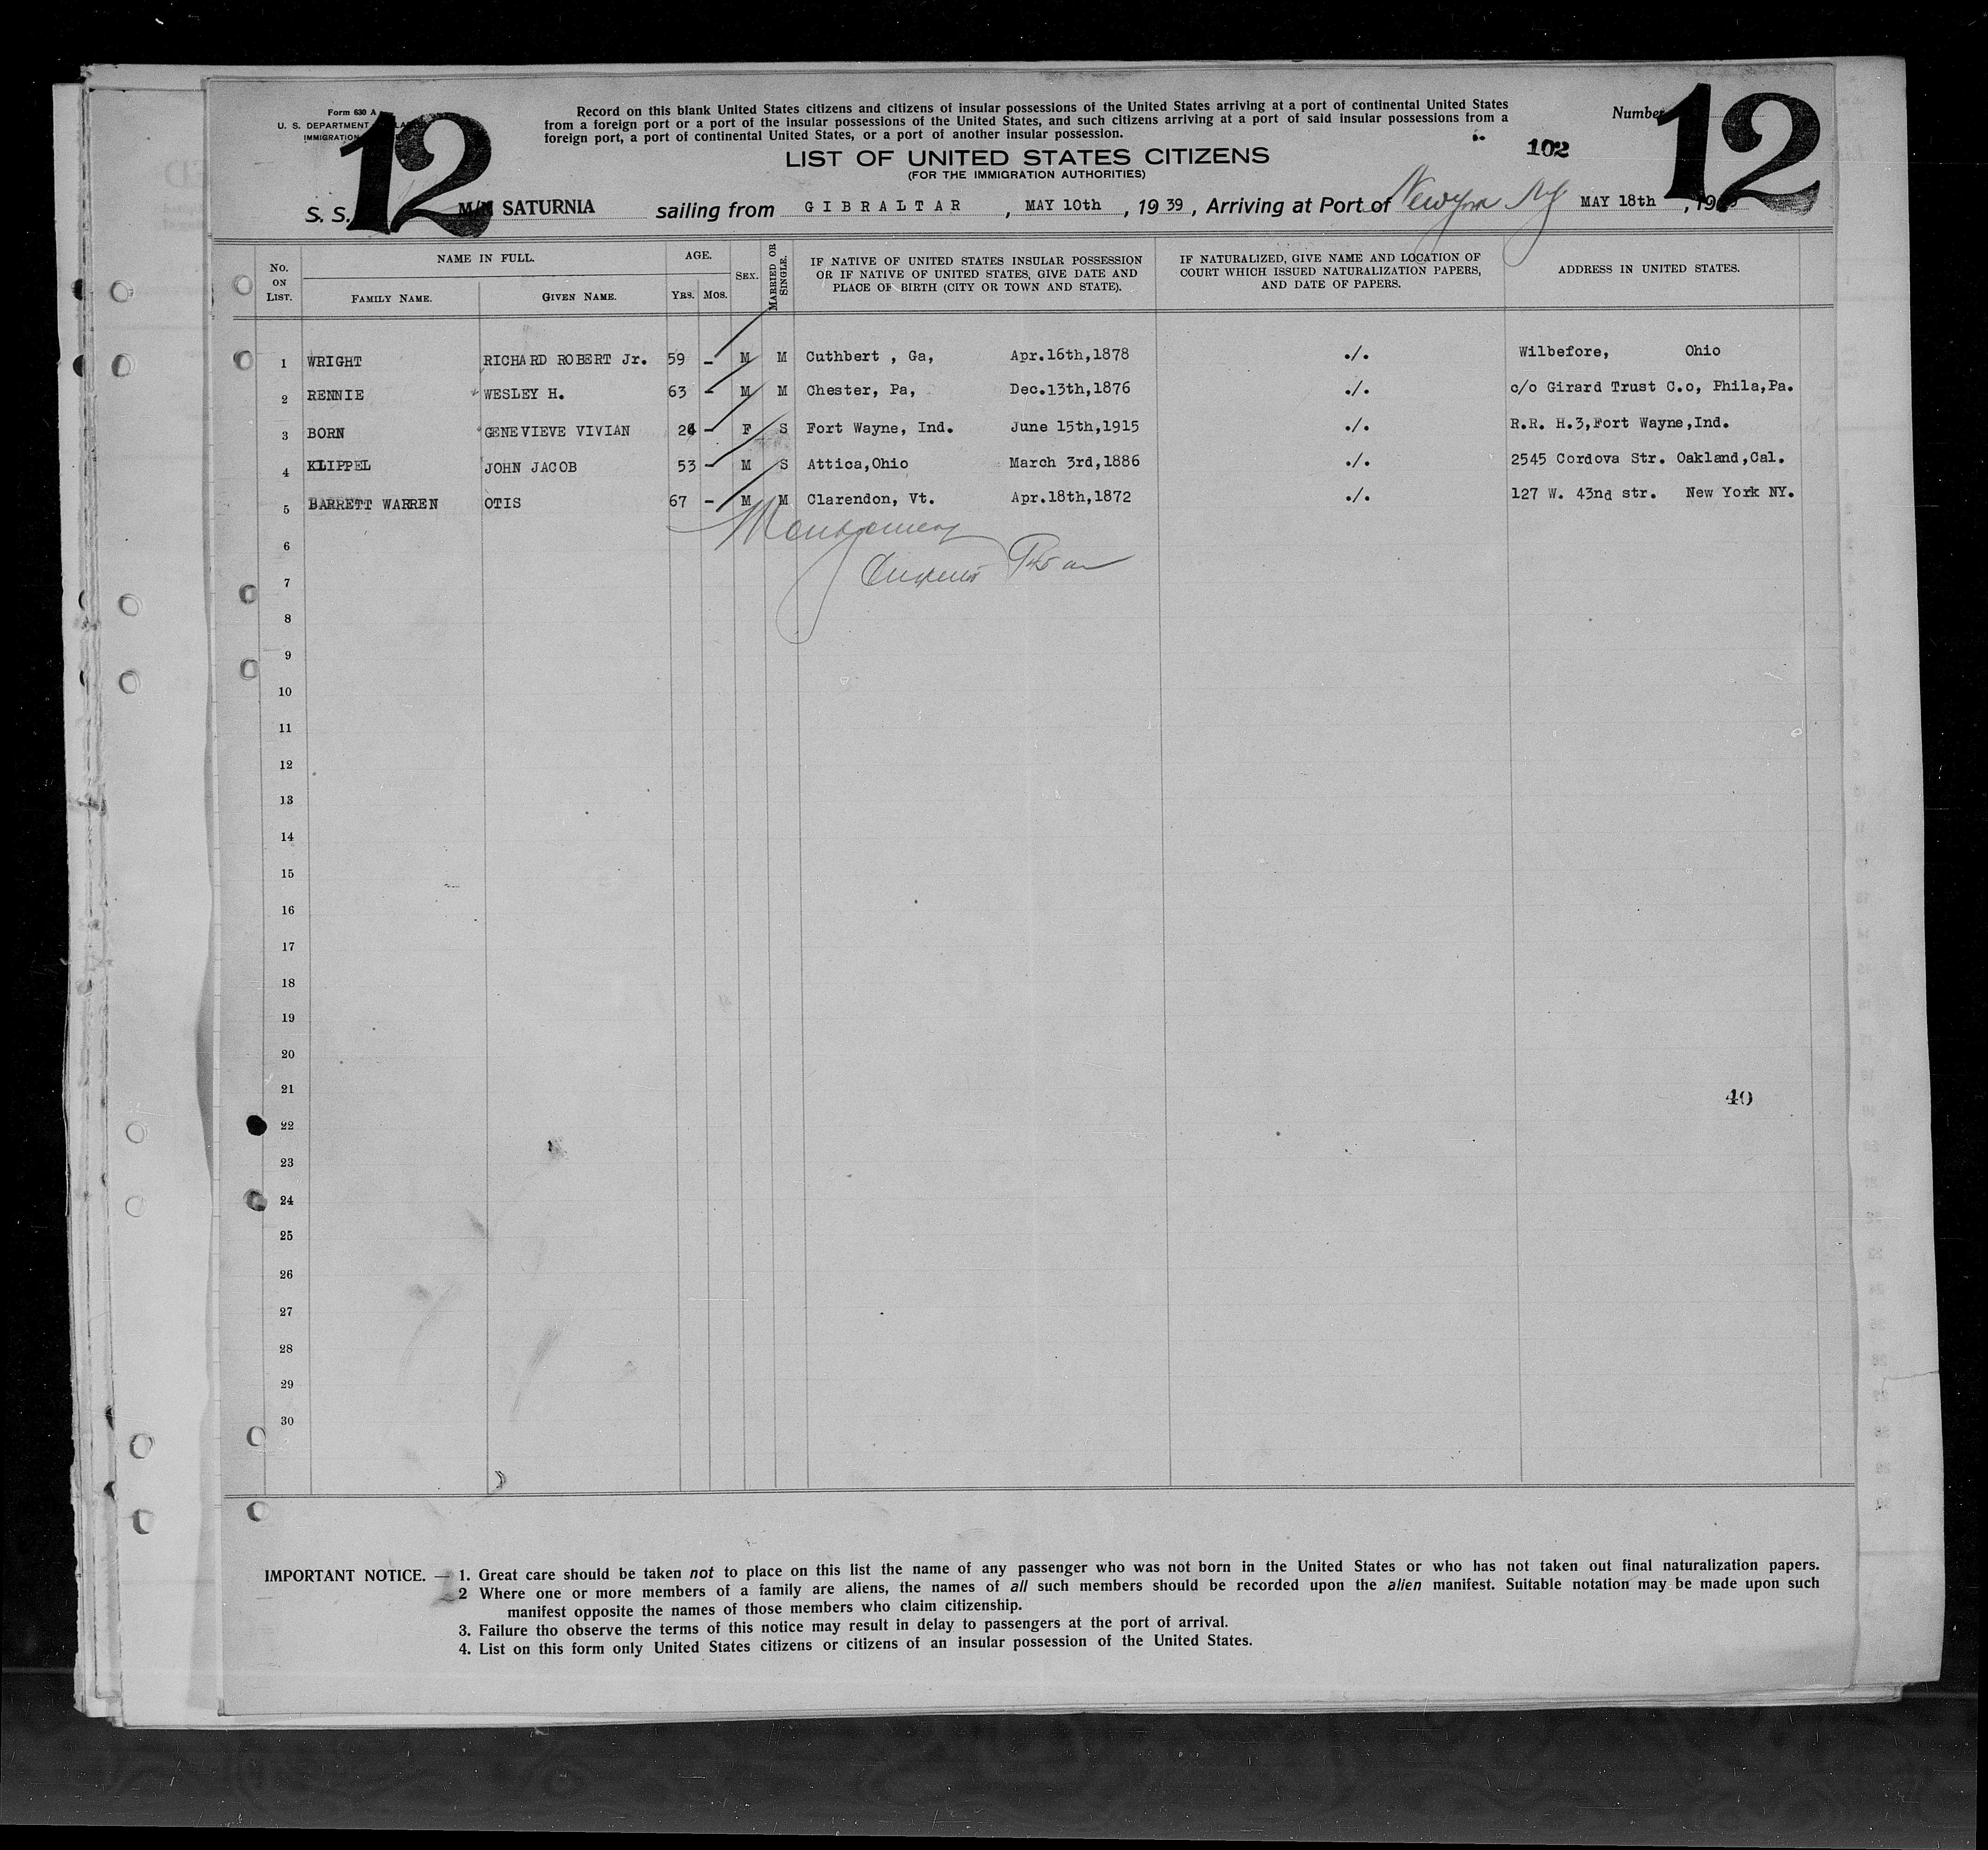 Form 630 A
U. S. DEPARTMENT
IMMIGRATION
12
Record on this blank United States citizens and citizens of insular possessions of the United States arriving at a port of continental United States
from a foreign port or a port of the insular possessions of the United States, and such citizens arriving at a port of said insular possessions from a
foreign port, a port of continental United States, or a port of another insular possession.
Number 12
102
LIST OF UNITED STATES CITIZENS
(FOR THE IMMIGRATION AUTHORITIES)
S. S. M/N SATURNIA sailing from GIBRALTAR , MAY 10th , 19 39 , Arriving at Port of New York NY MAY 18th , 19
No. ON LIST. NAME IN FULL. AGE. SEX. MARRIED OR SINGLE. IF NATIVE OF UNITED STATES INSULAR POSSESSION OR IF NATIVE OF UNITED STATES, GIVE DATE AND PLACE OF BIRTH (CITY OR TOWN AND STATE). IF NATURALIZED, GIVE NAME AND LOCATION OF COURT WHICH ISSUED NATURALIZATION PAPERS, AND DATE OF PAPERS. ADDRESS IN UNITED STATES.
FAMILY NAME. GIVEN NAME. YRS. MOS.
1 WRIGHT RICHARD ROBERT Jr. 59 - M M Cuthbert , Ga, Apr.16th,1878 ./. Wilbefore, Ohio
2 RENNIE WESLEY H. 63 - M M Chester, Pa, Dec.13th,1876 ./. c/o Girard Trust C.o, Phila,Pa.
3 BORN GENEVIEVE VIVIAN 24 - F S Fort Wayne, Ind. June 15th,1915 ./. R.R. H.3,Fort Wayne,Ind.
4 KLIPPEL JOHN JACOB 53 - M S Attica,Ohio March 3rd,1886 ./. 2545 Cordova Str. Oakland,Cal.
5 BARRETT WARREN OTIS 67 - M M Clarendon, Vt. Apr.18th,1872 ./. 127 W. 43nd str. New York NY.
Montgomery
6
7
8
9
10
11
12
13
14
15
16
17
18
19
20
21
40
22
23
24
25
26
27
28
29
30
IMPORTANT NOTICE. — 1. Great care should be taken not to place on this list the name of any passenger who was not born in the United States or who has not taken out final naturalization papers.
2 Where one or more members of a family are aliens, the names of all such members should be recorded upon the alien manifest. Suitable notation may be made upon such
manifest opposite the names of those members who claim citizenship.
3. Failure tho observe the terms of this notice may result in delay to passengers at the port of arrival.
4. List on this form only United States citizens or citizens of an insular possession of the United States.